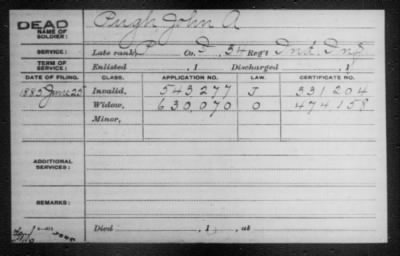 DEAD Pugh John A
NAME OF SOLDIER:
SERVICE: Late rank P Co. I, 34 Reg't Ind. Inf.
TERM OF SERVICE: Enlisted , 1 Discharged , 1
DATE OF FILING. CLASS. APPLICATION NO. LAW. CERTIFICATE NO.
1885 June 25 Invalid, 543277 J 331204
Widow, 630,070 O 474158
Minor,
ADDITIONAL SERVICES:
REMARKS:
Died , 1 , at